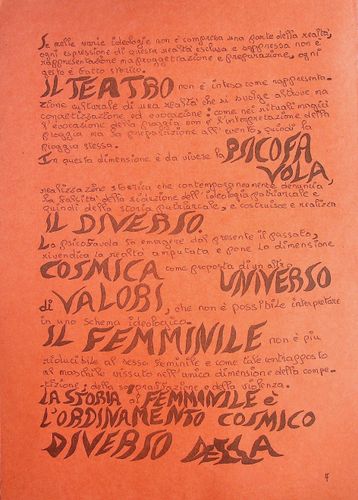 Se nelle varie ideologie non è compresa una parte della realtà,
ogni espressione di questa realtà esclusa e soppressa non è
rappresentazione ma progettazione e preparazione, ogni
gesto è fatto storico.
IL TEATRO non è intesa come rappresenta-
zione culturale di una realtà che si svolge altrove ma
concretizzazione ed evocazione: come nei rituali magici
l'evocazione della pioggia non è l'interpretazione della
pioggia ma la predisposizione all'evento, quindi la
pioggia stessa.
In questa dimensione è da vivere la PSICOFA
VOLA,
realizzazione storica che contemporaneamente denuncia
la falsità della riduzione dell'ideologia patriarcale e
quindi della storia patriarcale, e costruisce e realizza
IL DIVERSO.
La psicofavola fa emergere dal presente il passato,
rivendica la realtà amputata e pone la dimensione
COSMICA come proposta di un altro UNIVERSO
di VALORI, che non è possibile interpretare
in uno schema ideologico.
IL FEMMINILE non è più
riducibile al sesso femminile e come tale contrapposto
al maschile vissuto nell'unica dimensione della compe-
tizione, della sopraffazione e della violenza.
LA STORIA al FEMMINILE è
L'ORDINAMENTO COSMICO
DIVERSO DELLA